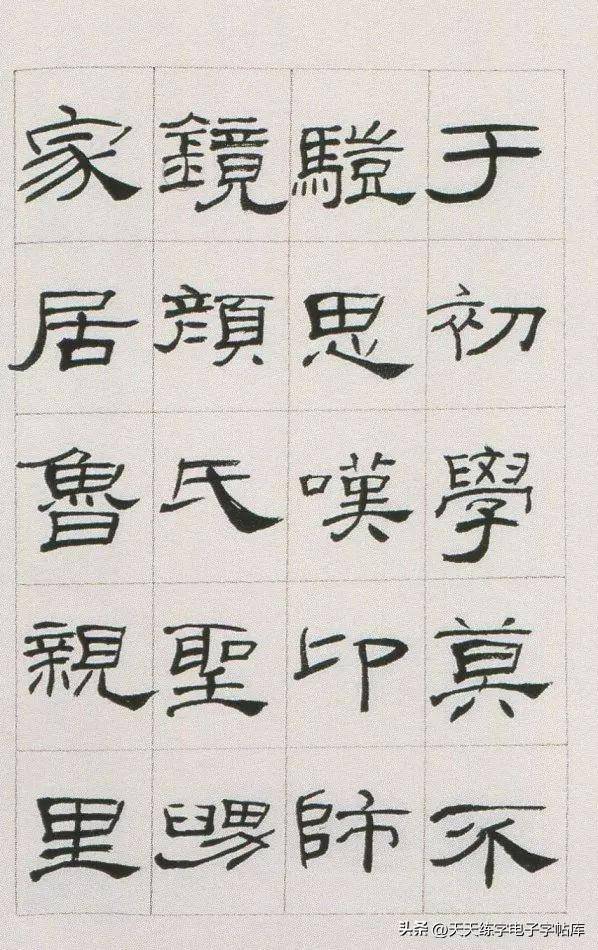 于初學莫不
䮗思嘆卬師
鏡顏氏聖舅
家居魯親里
头条 @天天练字电子字帖库